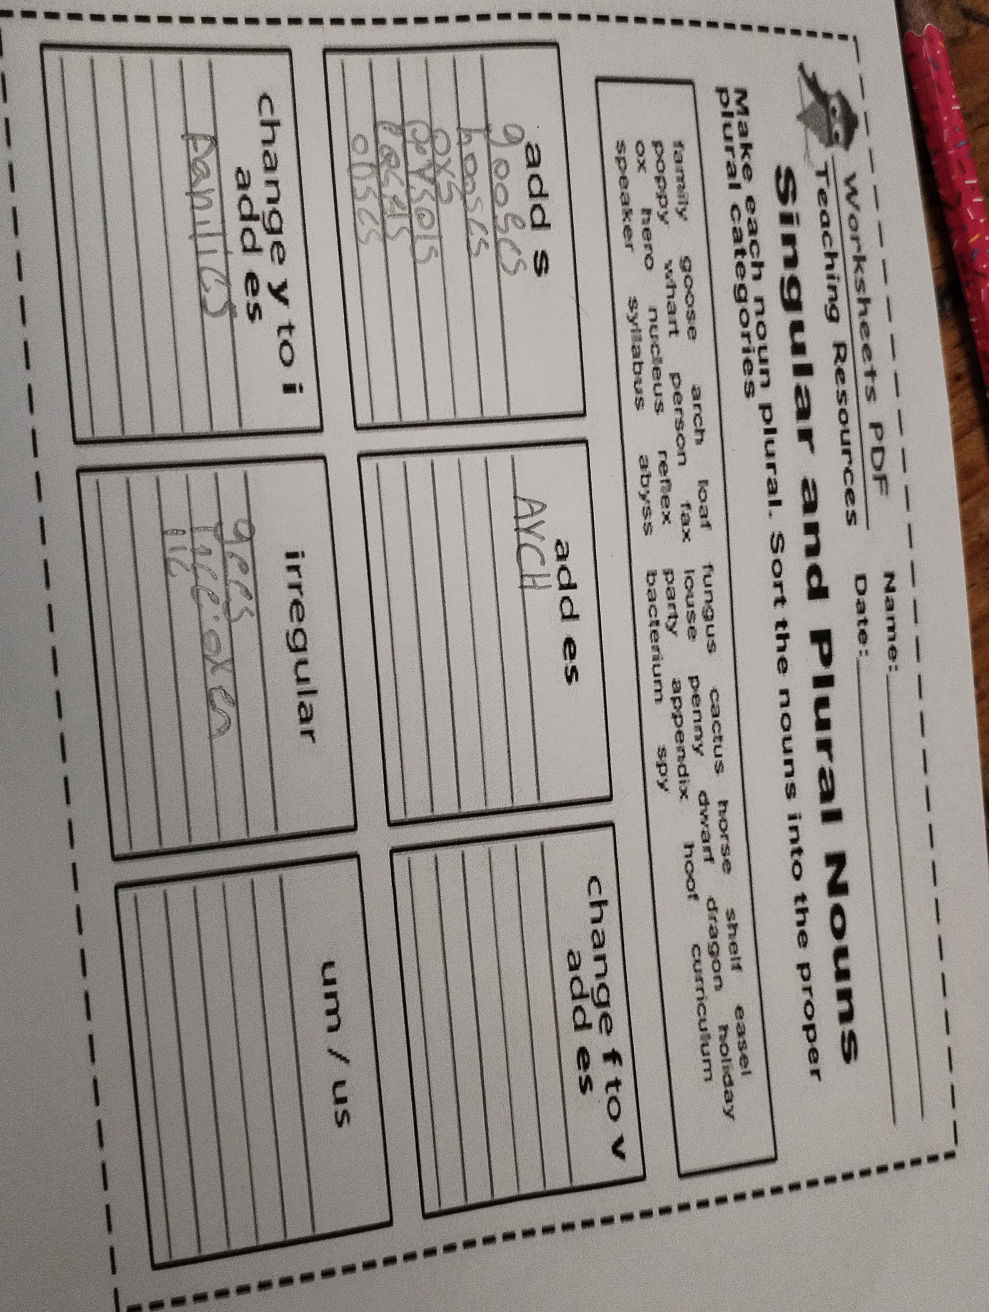 Worksheets PDF
Teaching Resources
Name:
Date:
Singular and Plural Nouns
Make each noun plural. Sort the nouns into the proper
plural categories
family goose arch loaf fungus cactus horse shelf easel
poppy whart person fax louse penny dwarf dragon holiday
ox hero nucleus reflex party appendix hoof curriculum
speaker syllabus abyss bacterium spy
add s
gooses
oxs
add es
ArCH
change f to v
add es
change y to i
add es
irregular
oxen
um / us